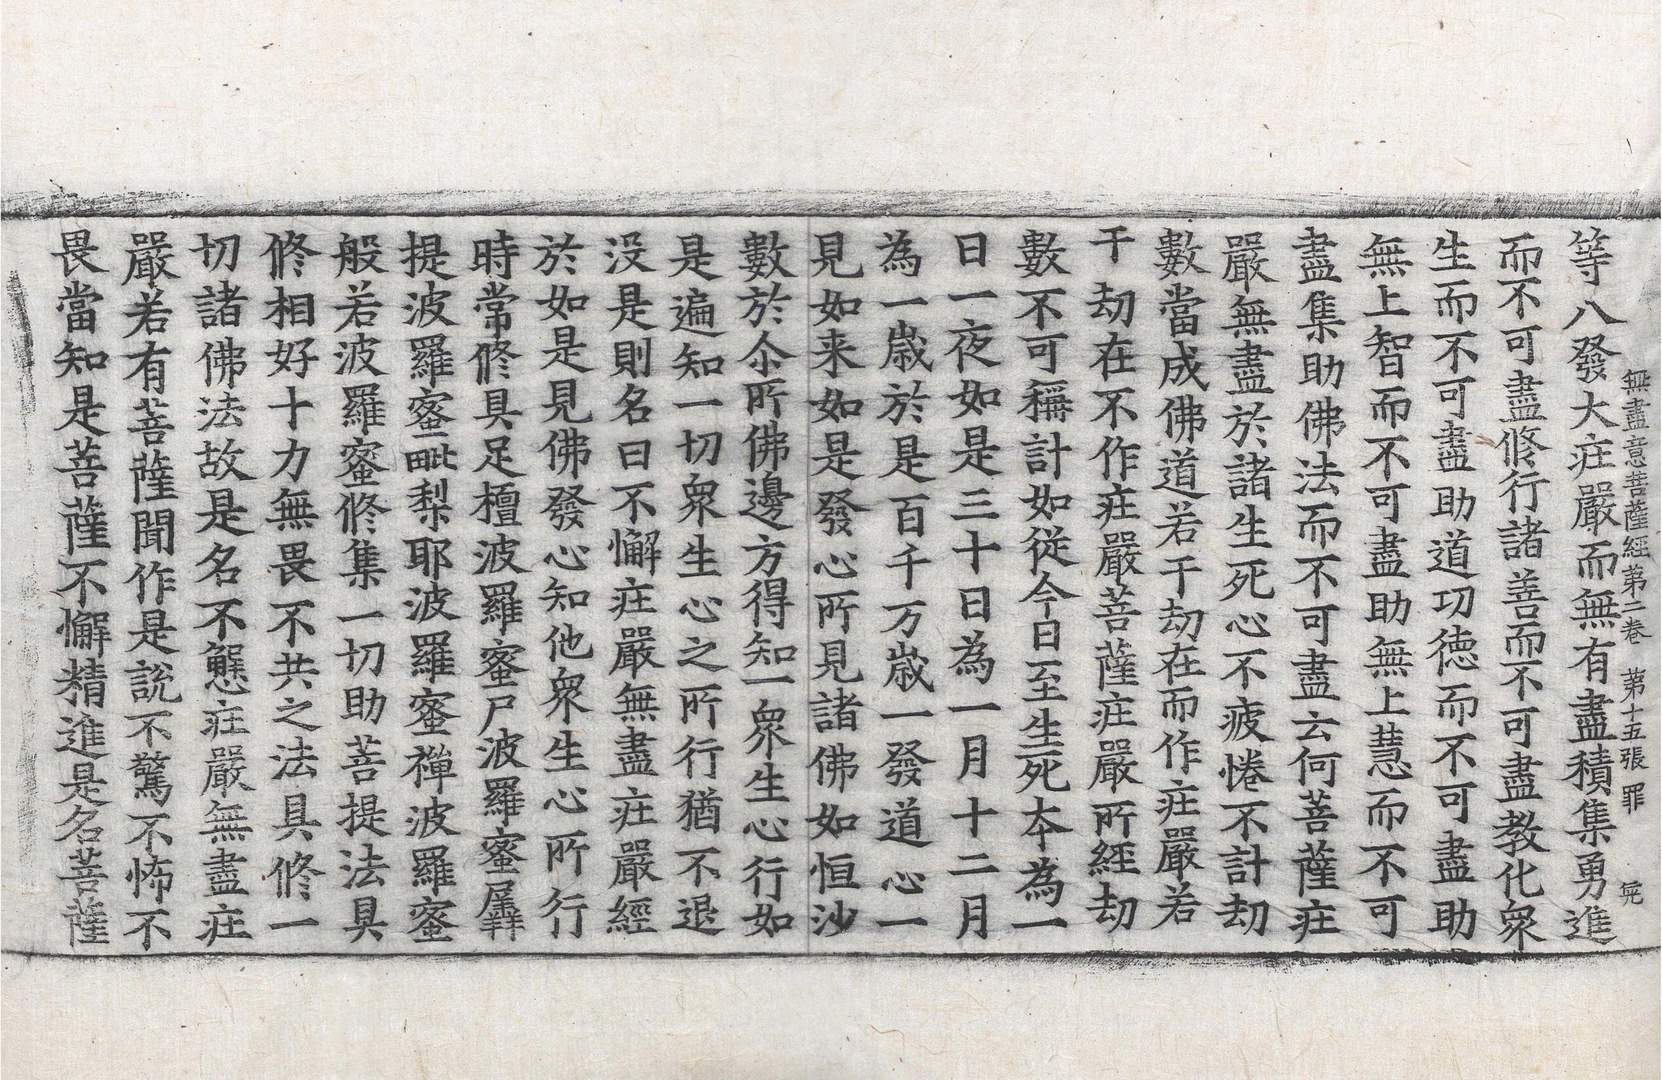 無盡意菩薩經第二卷　第十五張　罪　完
等八發大疘嚴而無有盡積集勇進
而不可盡修行諸善而不可盡教化衆
生而不可盡助道功德而不可盡助
無上智而不可盡助無上慧而不可
盡集助佛法而不可盡云何菩薩疘
嚴無盡於諸生死心不疲惓不計劫
數當成佛道若干劫在而作疘嚴若
干劫在不作疘嚴菩薩疘嚴所經劫
數不可稱計如從今日至生死夲為一
日一夜如是三十日為一月十二月
為一歲於是百千万歲一發道心一
見如来如是發心所見諸佛如恒沙
數於尒所佛邊方得知一衆生心行如
是遍知一切衆生心之所行猶不退
没是則名曰不懈疘嚴無盡疘嚴經
於如是見佛發心知他衆生心所行
時常修具足檀波羅蜜尸波羅蜜羼
提波羅蜜毗梨耶波羅蜜禪波羅蜜
般若波羅蜜修集一切助菩提法具
修相好十力無畏不共之法具修一
切諸佛法故是名不懈疘嚴無盡疘
嚴若有菩薩聞作是說不驚不怖不
畏當知是菩薩不懈精進是名菩薩